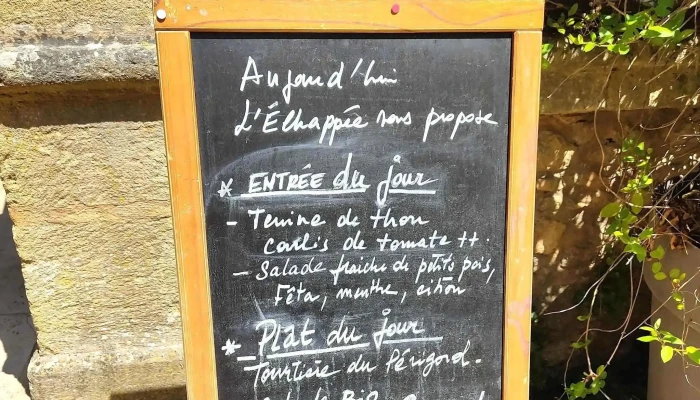 Aujourd'hui
L'Échappée vous propose
* ENTRÉE du jour
- Terrine de thon
coulis de tomate ++.
- Salade fraîche de petits pois,
Fêta, menthe, citron
* Plat du jour
- Tourtière du Périgord.